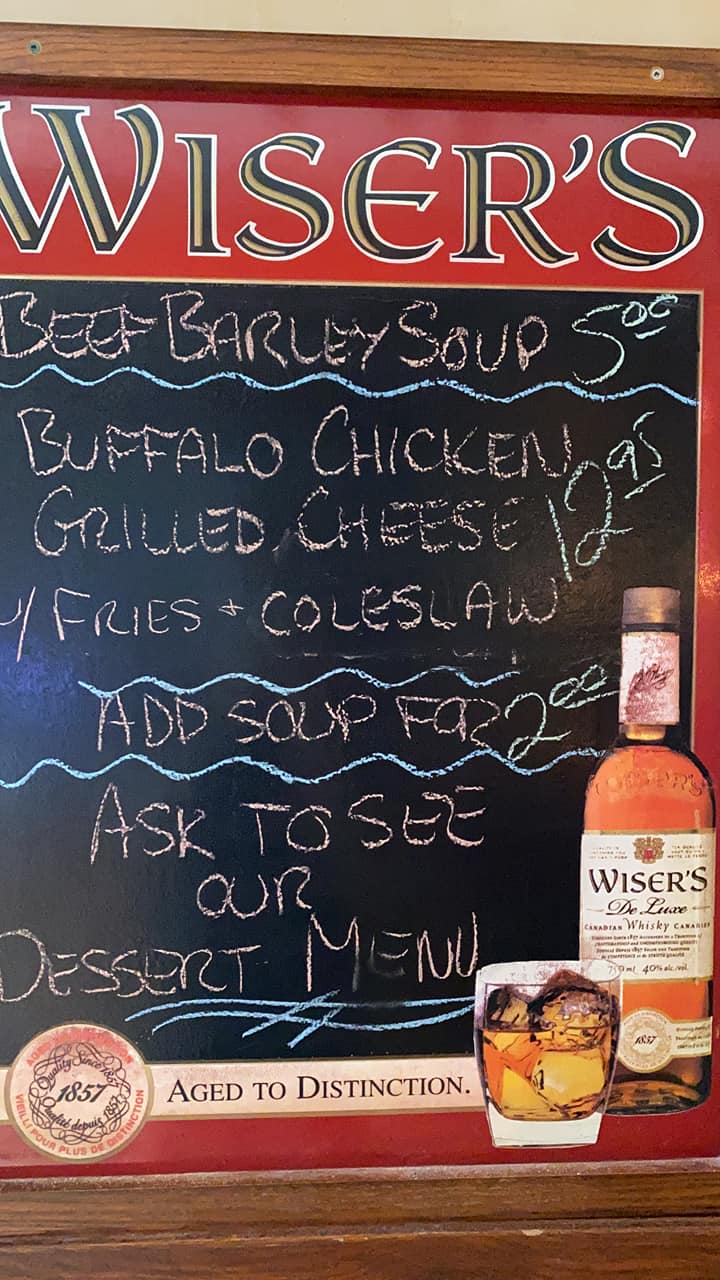 WISER'S
BEEF BARLEY SOUP 5.00
BUFFALO CHICKEN
GRILLED CHEESE 12.95
w/ FRIES + COLESLAW
ADD SOUP FOR 2.00
ASK TO SEE
OUR
DESSERT MENU
WISER'S
De Luxe
CANADIAN Whisky CANADIEN
750 ml 40% alc./vol.
1857
Quality Since 1857
1857
Qualité depuis 1857
VIEILLI POUR PLUS DE DISTINCTION
AGED TO DISTINCTION.